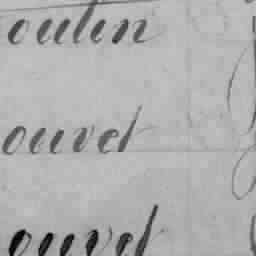 outin
ouvet
ouvet